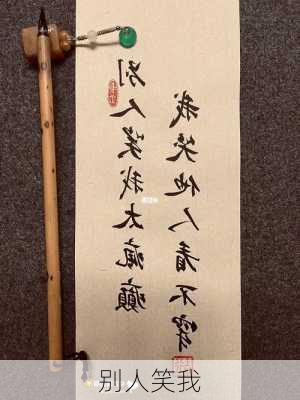 别人笑我太瘋癲
我笑他人看不穿
别人笑我